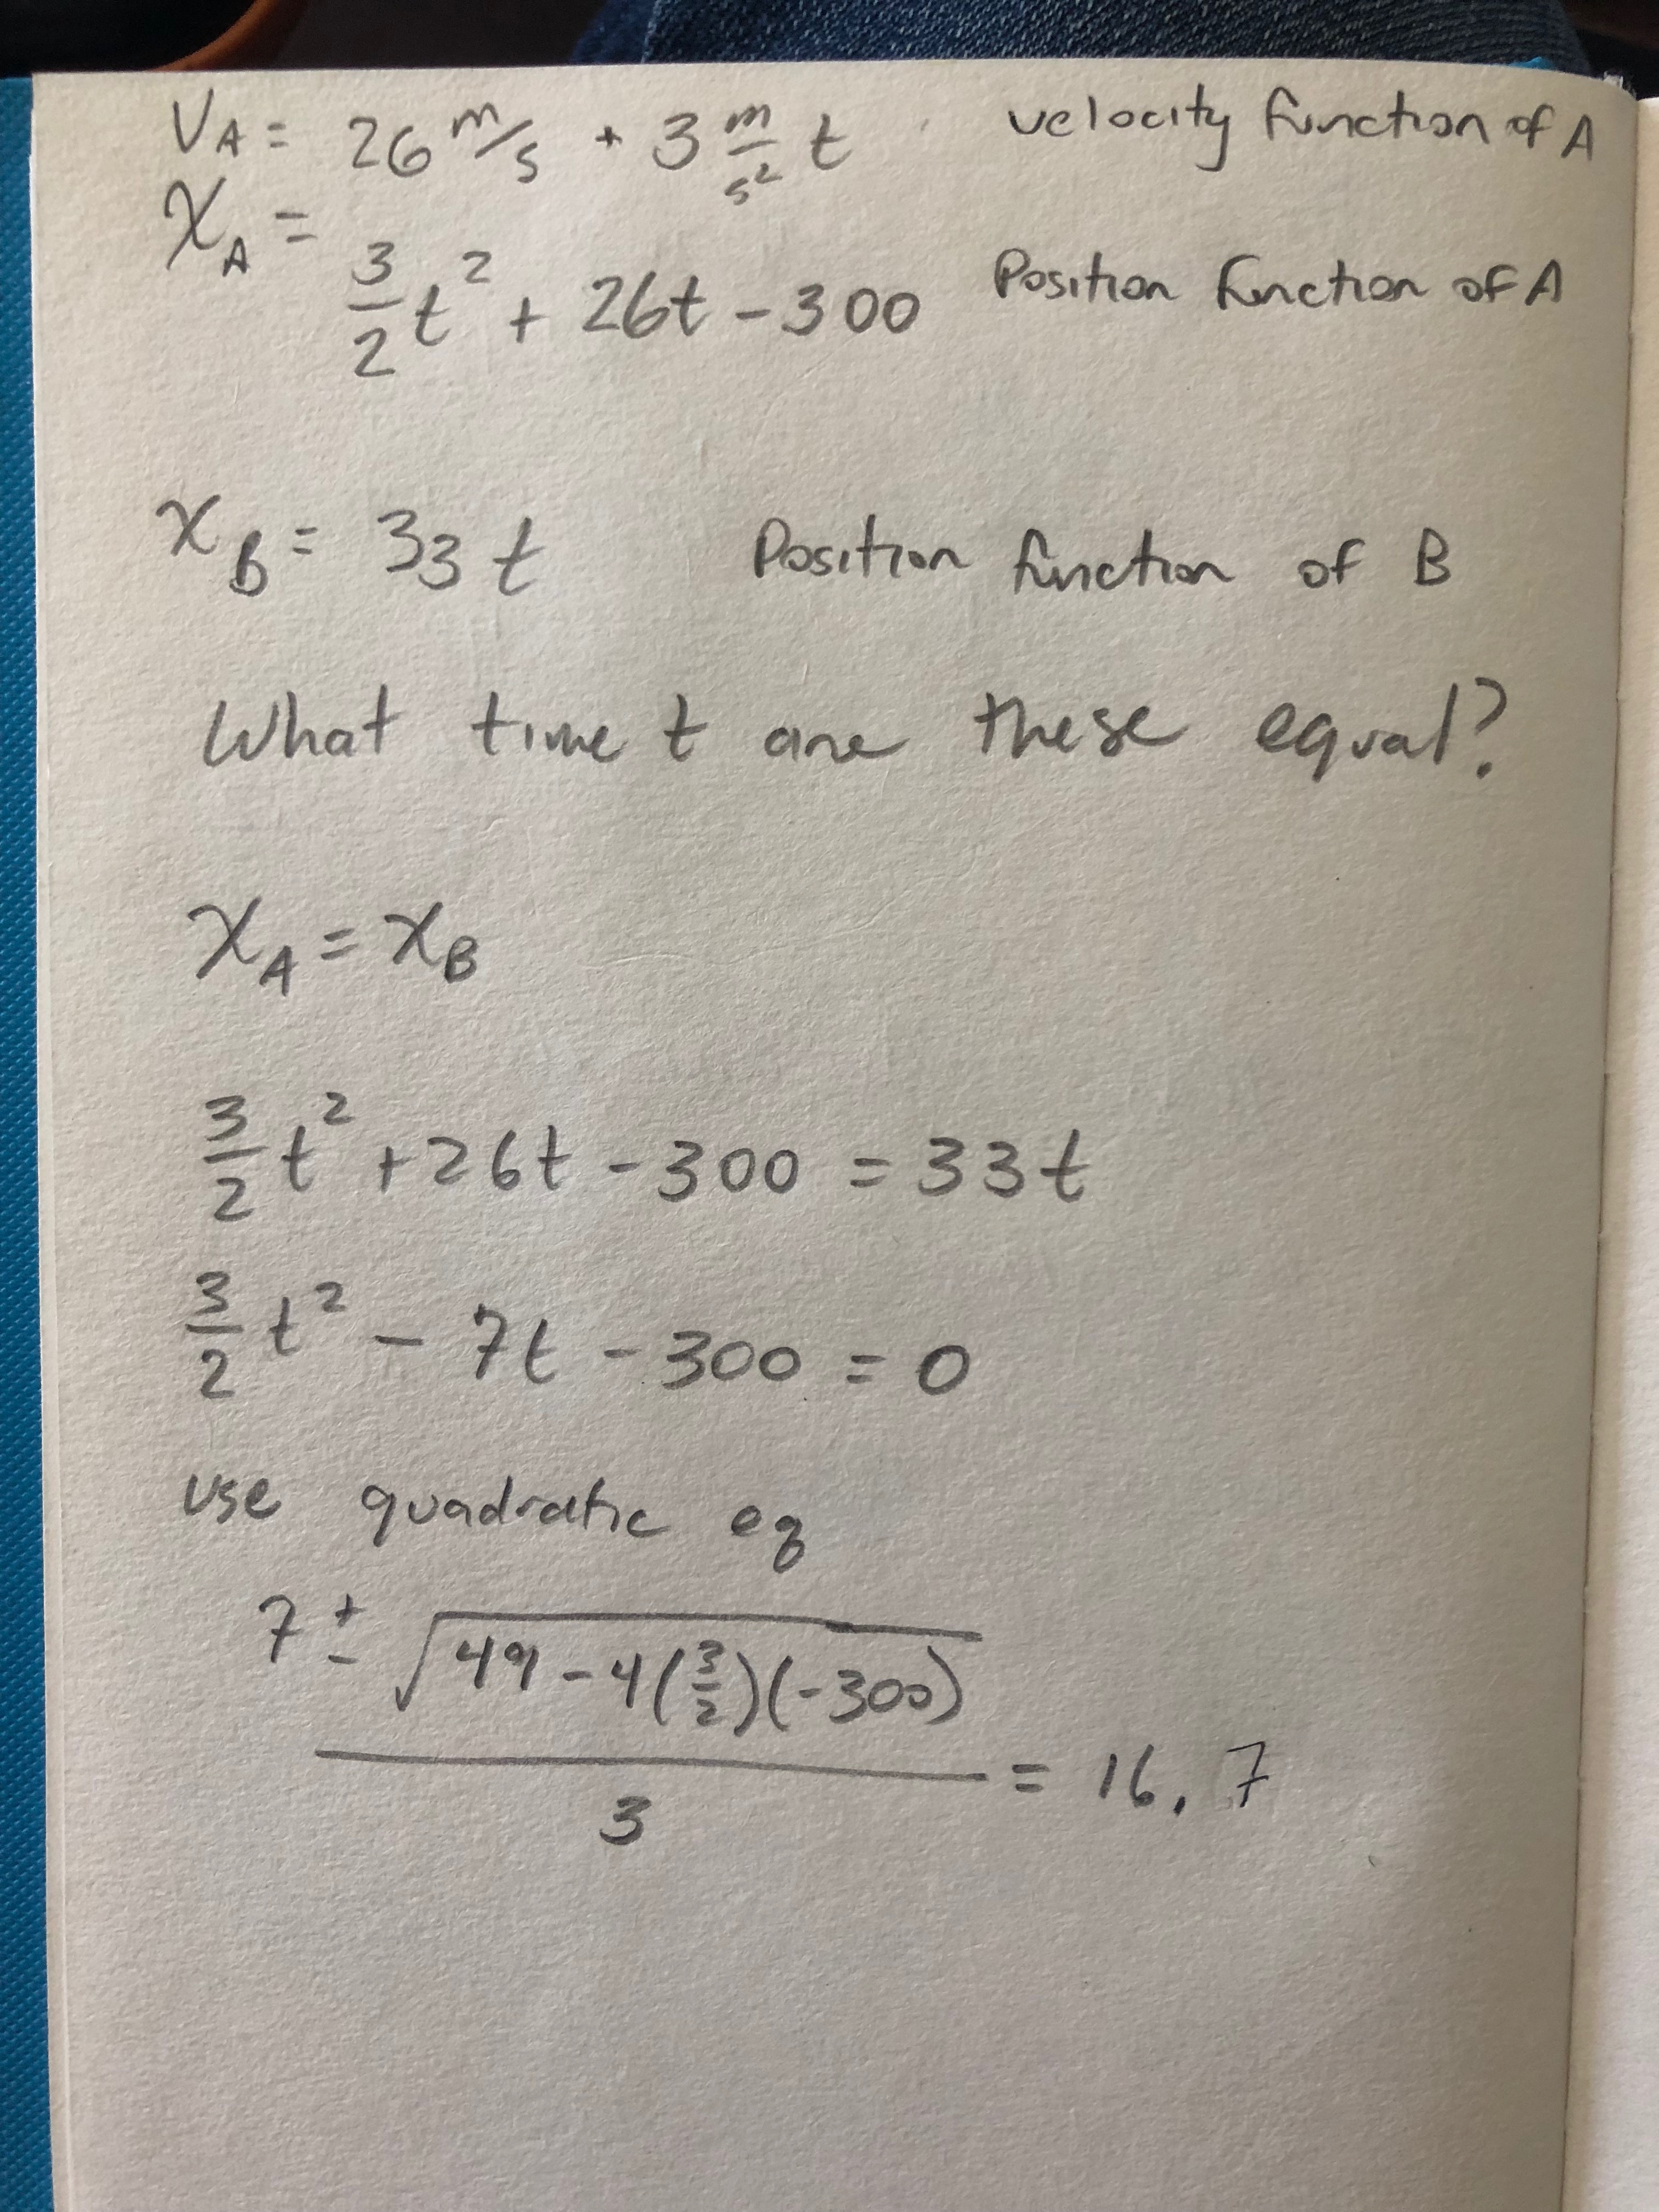 V_A = 26 m/s + 3 m/s² t velocity function of A
X_A =
3/2 t² + 26t - 300 Position function of A
x_B = 33t Position function of B
What time t are these equal?
x_A = x_B
3/2 t² + 26t - 300 = 33t
3/2 t² - 7t - 300 = 0
use quadratic eq
7 ± √(49 - 4(3/2)(-300)) / 3 = 16.7